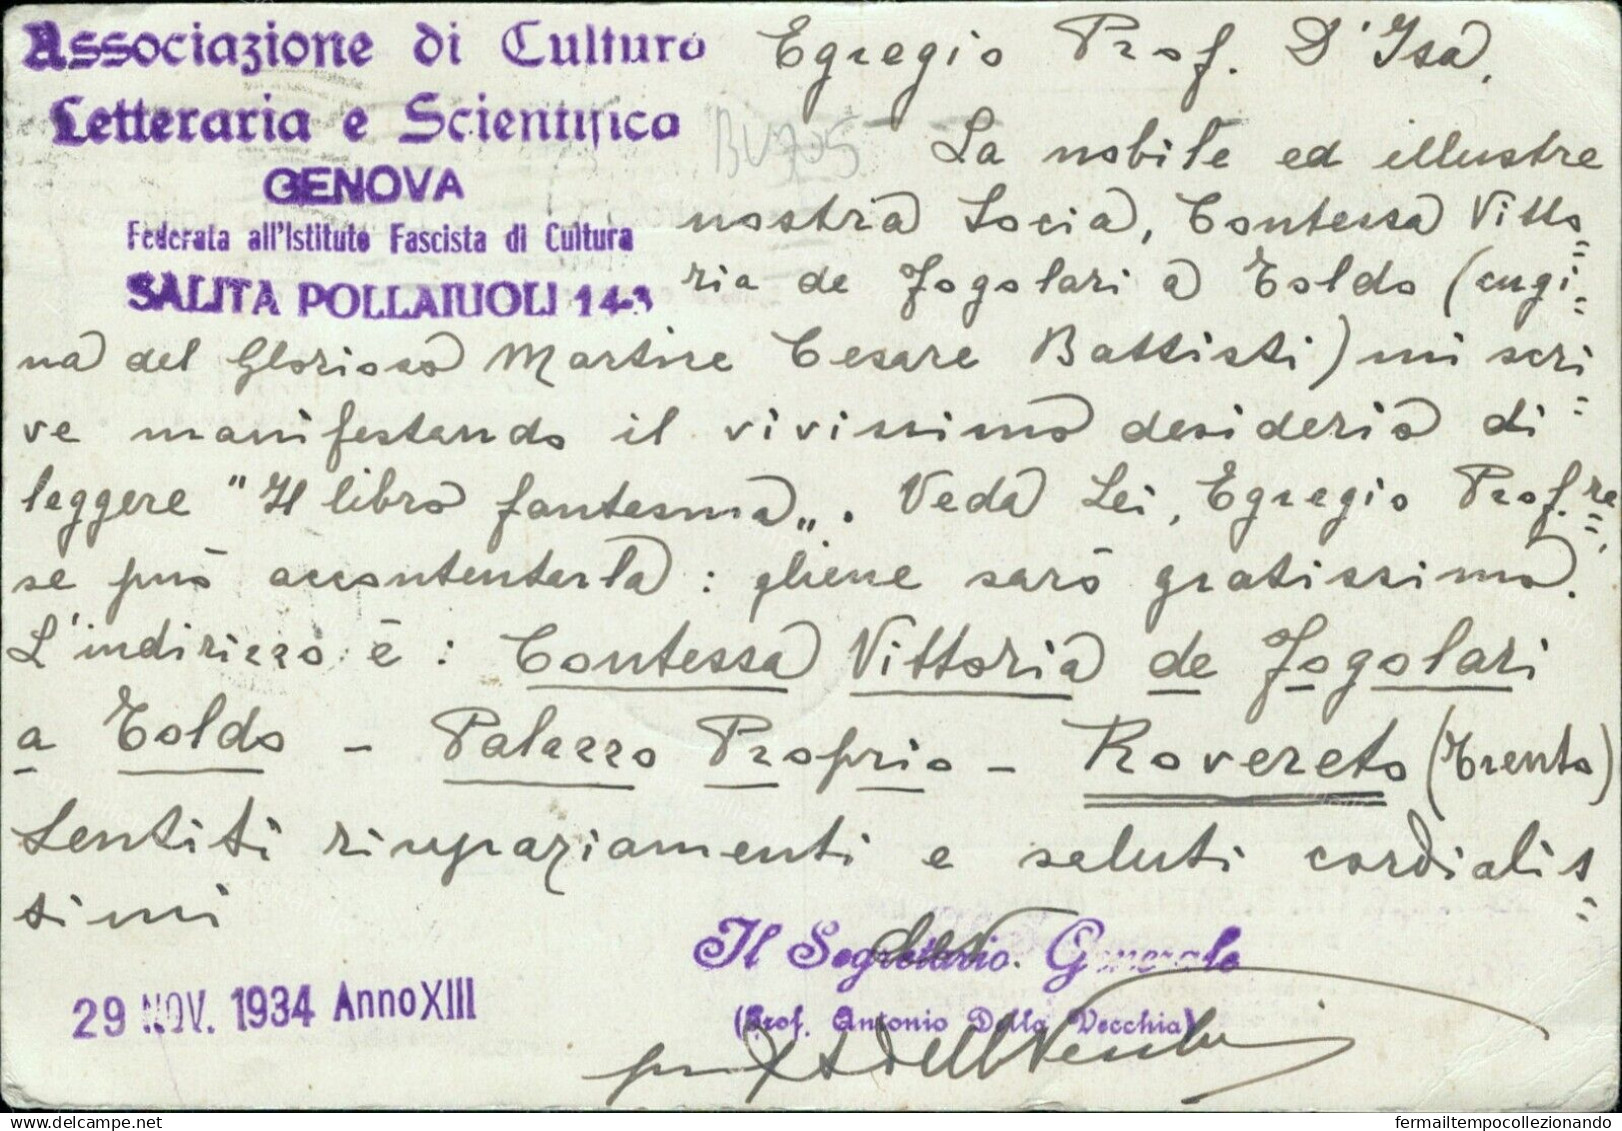 Associazione di Cultura
Letteraria e Scientifica
GENOVA
Federata all'Istituto Fascista di Cultura
SALITA POLLAIUOLI 14-3
BV705
Egregio Prof. D'Isa,
La nobile ed illustre
nostra Socia, Contessa Vitto=
ria de Fogolari a Toldo (cugi=
na del Glorioso Martire Cesare Battisti) mi scri=
ve manifestando il vivissimo desiderio di
leggere "Il libro fantasma„. Veda Lei, Egregio Prof.re,
se può accontentarla: gliene sarò gratissimo.
L'indirizzo è: Contessa Vittoria de Fogolari
a Toldo - Palazzo Proprio - Rovereto (Trento)
Sentiti ringraziamenti e saluti cordialis=
simi
Il Segretario Generale
(Prof. Antonio Della Vecchia)
29 NOV. 1934 Anno XIII
prof A Della Vecchia
fermailtempocollezionando